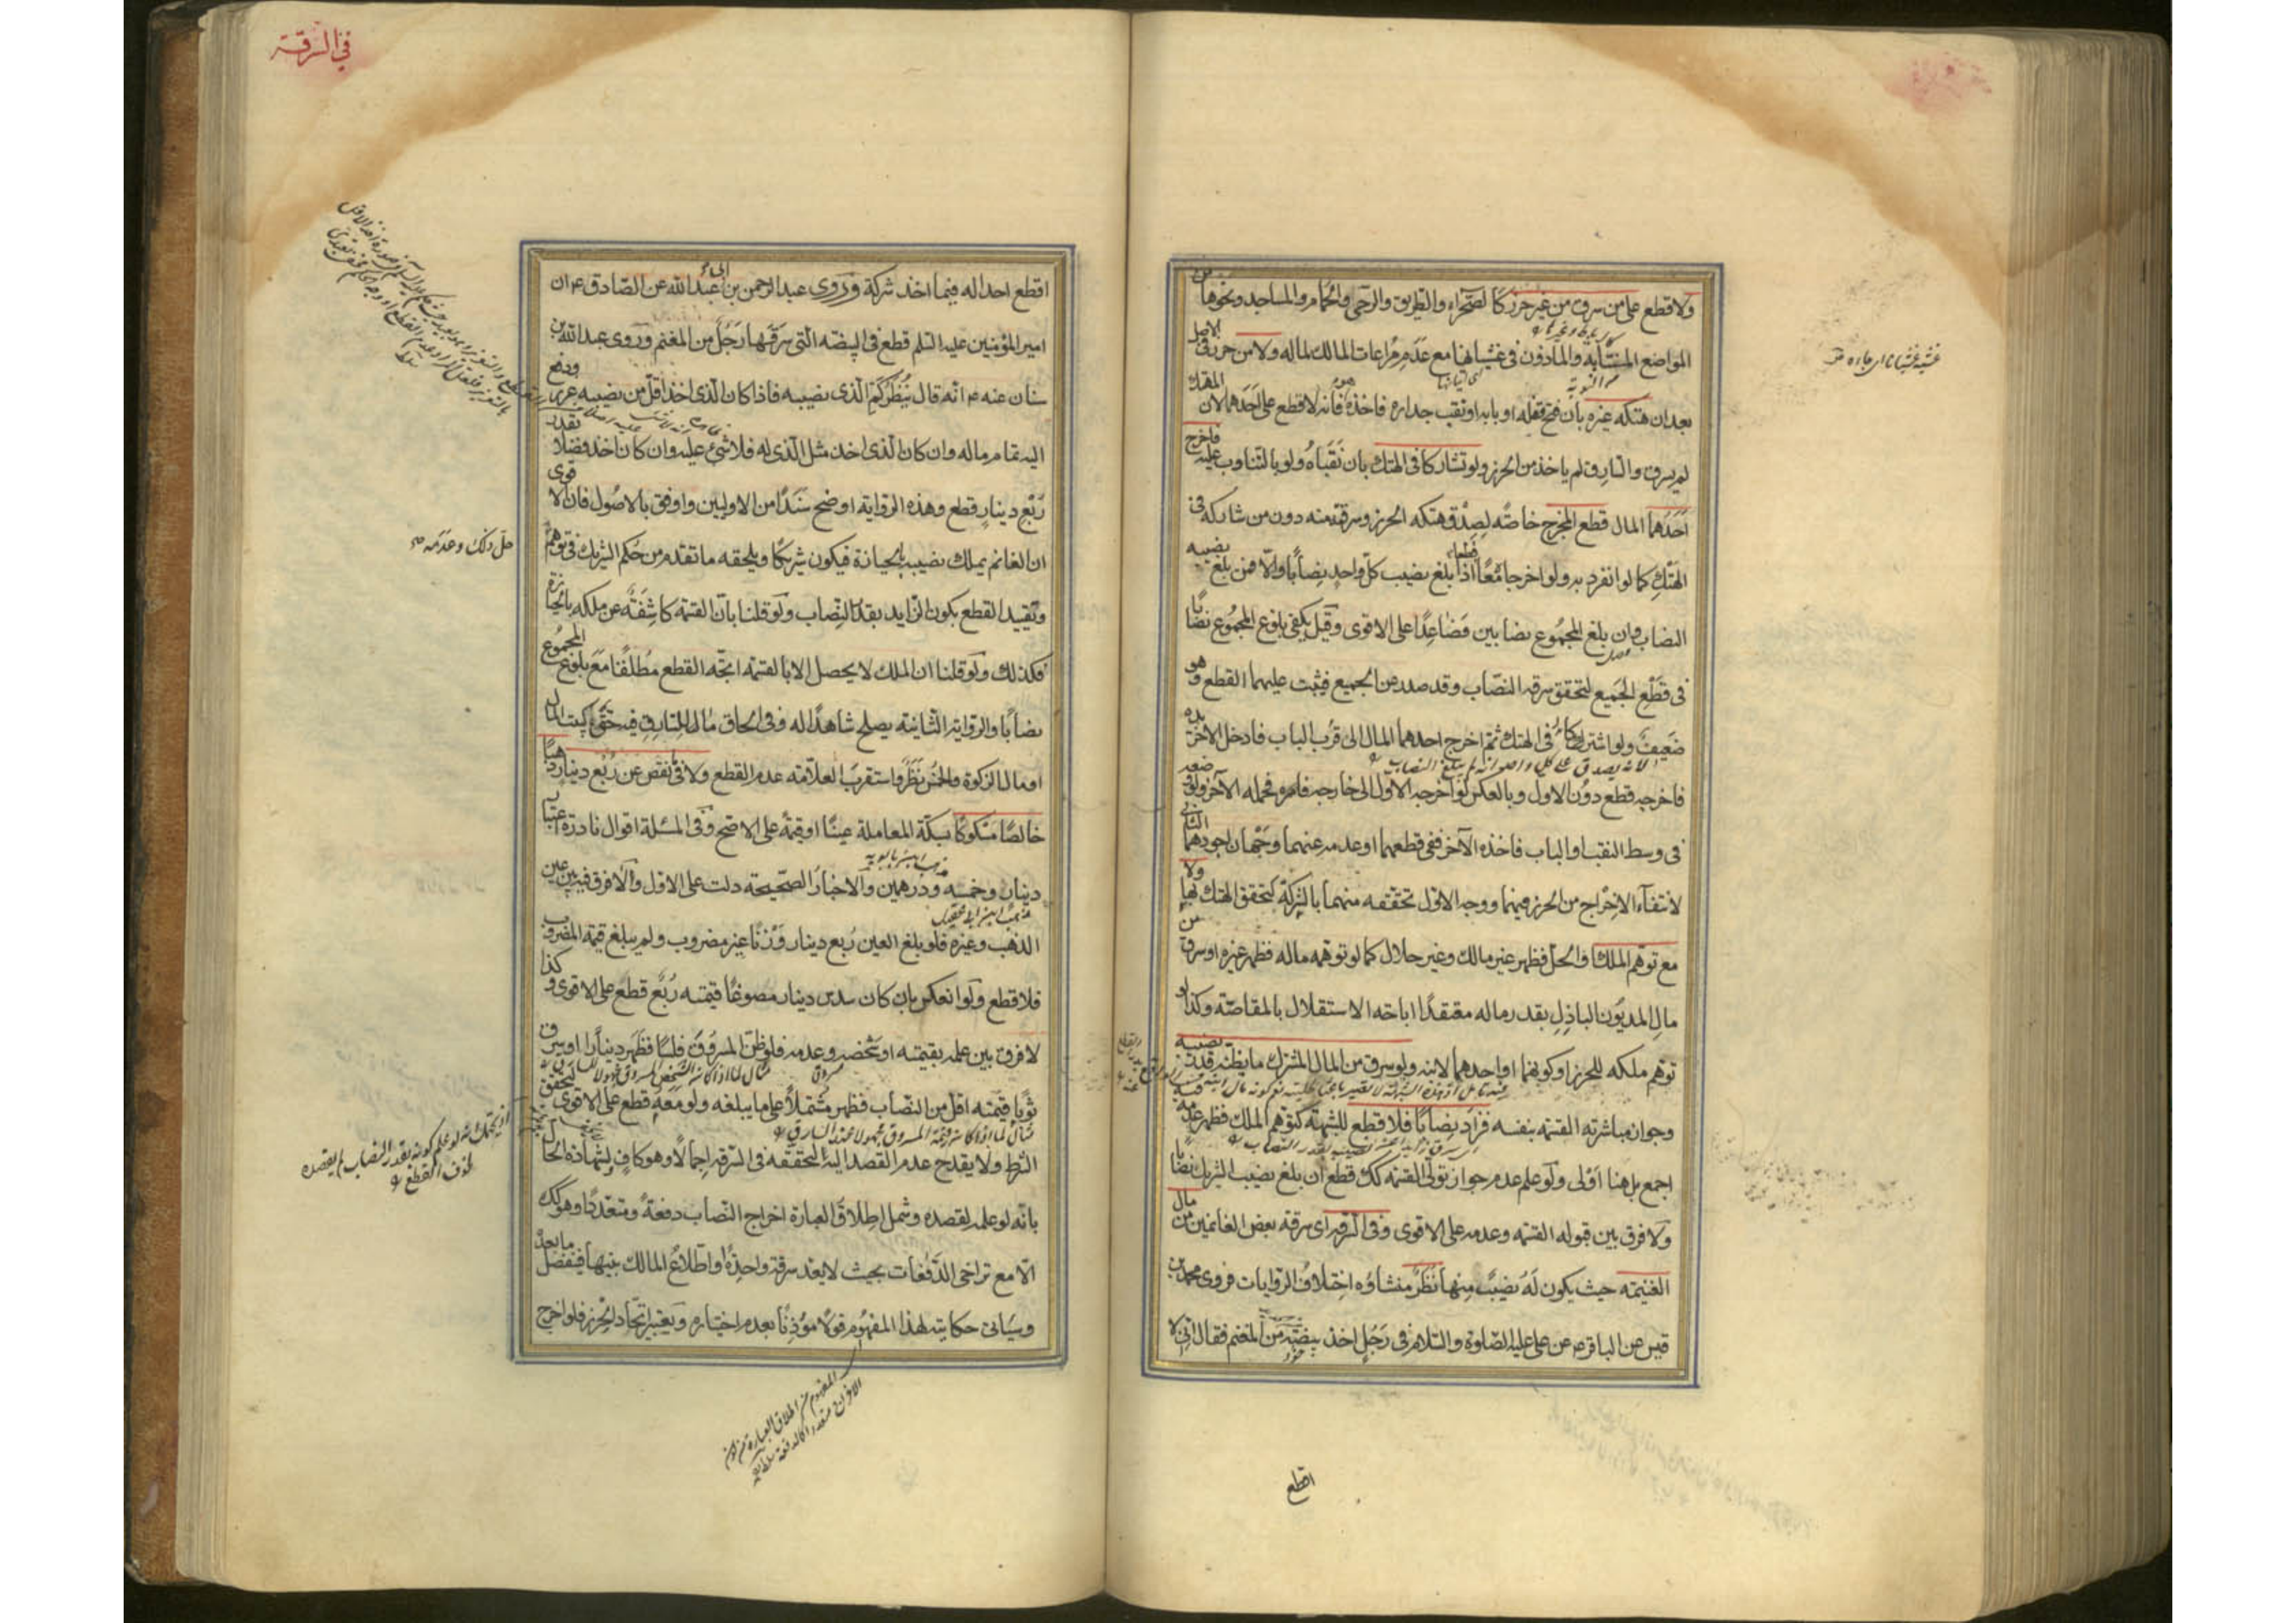 ولا قطع على من سرق من غير حرز كالصحراء والطريق والرحى والحمام والمساجد ونحوها من
المواضع المنتابة والمأذون في غشيانها مع عدم مراعات المالك لماله ولا من حرز في الاصل
بعد ان هتكه غيره بأن فتح قفله او بابه او نقب جداره فاخذه هو فانه لا قطع على احدهما لان المهتك
لم يسرق والسارق لم ياخذ من الحرز ولو تشاركا في الهتك بان نقباه ولو بالتناوب عليه فاخرج
احدهما المال قطع المخرج خاصة لصدق هتكه الحرز وسرقته منه دون من شاركه في
الهتك كما لو انفرد به ولو اخرجا معا قطعا اذا بلغ نصيب كل واحد نصابا والا فمن بلغ نصيبه
النصاب وان بلغ المجموع نصابين فصاعدا على الاقوى وقيل يكفي بلوغ المجموع نصابا
في قطع الجميع لتحقق سرقة النصاب وقد صدر عن الجميع فيثبت عليهما القطع وهو
ضعيف ولو اشتركا في الهتك ثم اخرج احدهما المال الى قرب الباب فادخل الاخر يده
فاخرجه قطع دون الاول وبالعكس لو اخرجه الاول الى خارجه فحمله الآخر ولو وضعه
في وسط النقب او الباب فاخذه الآخر ففي قطعهما او عدمه عنهما وجهان اجودهما الثاني
لانتفاء الاخراج من الحرز فيهما ووجه الاول تحققه منهما بالشركة كتحقق الهتك بها ولا
مع توهم الملك او الحل فظهر غير مالك وغير حلال كما لو توهمه ماله فظهر غيره او سرق من
مال المديون الباذل بقدر ماله معتقدا اباحة الاستقلال بالمقاصة وكذا لو
توهم ملكه للحرز او كونهما او احدهما لابنه ولو سرق من المال المشترك ما يظنه قدر نصيبه
وجوان مباشرته القسمة بنفسه فزاد نصابا فلا قطع للشبهة كتوهم الملك فظهر عدمه فيه
اجمع بل هنا اولى ولو علم عدم جواز تولي القسمة كك قطع ان بلغ نصيب الشريك نصابا
ولا فرق بين قبوله القسمة وعدمه على الاقوى وفي السرقة اي سرقة بعض الغانمين من مال
الغنيمة حيث يكون له نصيب منها نظر منشاؤه اختلاف الروايات فروى محمد بن
قيس عن الباقر ع عن علي عليه الصلوة والسلام في رجل اخذ بيضة من المغنم فقال اني لا
غشيه غشيانا اي جاءه
اقطع
في السرقة
اقطع احدا له فيما اخذ شركة وروى عبد الرحمن بن ابي عبد الله عن الصادق ع ان
امير المؤمنين عليه السلم قطع في البيضة التي سرقها رجل من المغنم وروى عبد الله بن
سنان عنه ع انه قال ينظر كم الذي نصيبه فاذا كان الذي اخذ اقل من نصيبه عزر ودفع
اليه تمام ماله وان كان الذي اخذ مثل الذي له فلا شئ عليه وان كان اخذ فضلا بقدر
ربع دينار قطع وهذه الرواية اوضح سندا من الاوليين واوفق بالاصول فان الاقوى
ان الغانم يملك نصيبه بالحيازة فيكون شريكا ويلحقه ما تقدم من حكم الشريك في توهم
حل ذلك وعدمه صح
وتقييد القطع بكون الزايد بقدر النصاب ولو قلنا بان القسمة كاشفة عن ملكه بالحيازة
فكذلك ولو قلنا ان الملك لا يحصل الا بالقسمة اتجه القطع مطلقا مع بلوغ المجموع
نصابا والرواية الثانية يصلح شاهدا له وفي الحاق مال للسارق فيه حق كبيت المال
او مال الزكوة والخمس نظر واستقرب العلامة عدم القطع ولا في نقص عن ربع دينار ذهبا
خالصا مسكوكا بسكة المعاملة عينا او قيمة على الاصح وفي المسئلة اقوال نادرة اعتبار
دينار وخمسه ودرهمين والاخبار الصحيحة دلت على الاول ولا فرق فيه بين عين
الذهب وغيره فلو بلغ العين ربع دينار وزنا غير مضروب ولم يبلغ قيمة المضروب
فلا قطع ولو انعكس بان كان سدس دينار مصوغا قيمته ربع قطع على الاقوى وكذا
لا فرق بين علمه بقيمته او شخصه وعدمه فلو ظن المسروق فلسا فظهر دينارا او سرق
ثوبا قيمته اقل من النصاب فظهر مشتملا على ما يبلغه ولو معه قطع على الاقوى لتحقق
الشرط ولا يقدح عدم القصد اليه لتحققه في السرقة اجمالا وهو كاف ولشهادة الحال
بانه لو علمه لقصده وشمل اطلاق العبارة اخراج النصاب دفعة ومتعددا وهو كك
الا مع تراخي الدفعات بحيث لا يعد سرقة واحدة او اطلاع المالك بينها فينفصل ما بعده
وسياتي حكايته لهذا المفهوم قولا مؤذنا بعدم اختياره ويعتبر اتحاد الحرز فلو اخرج